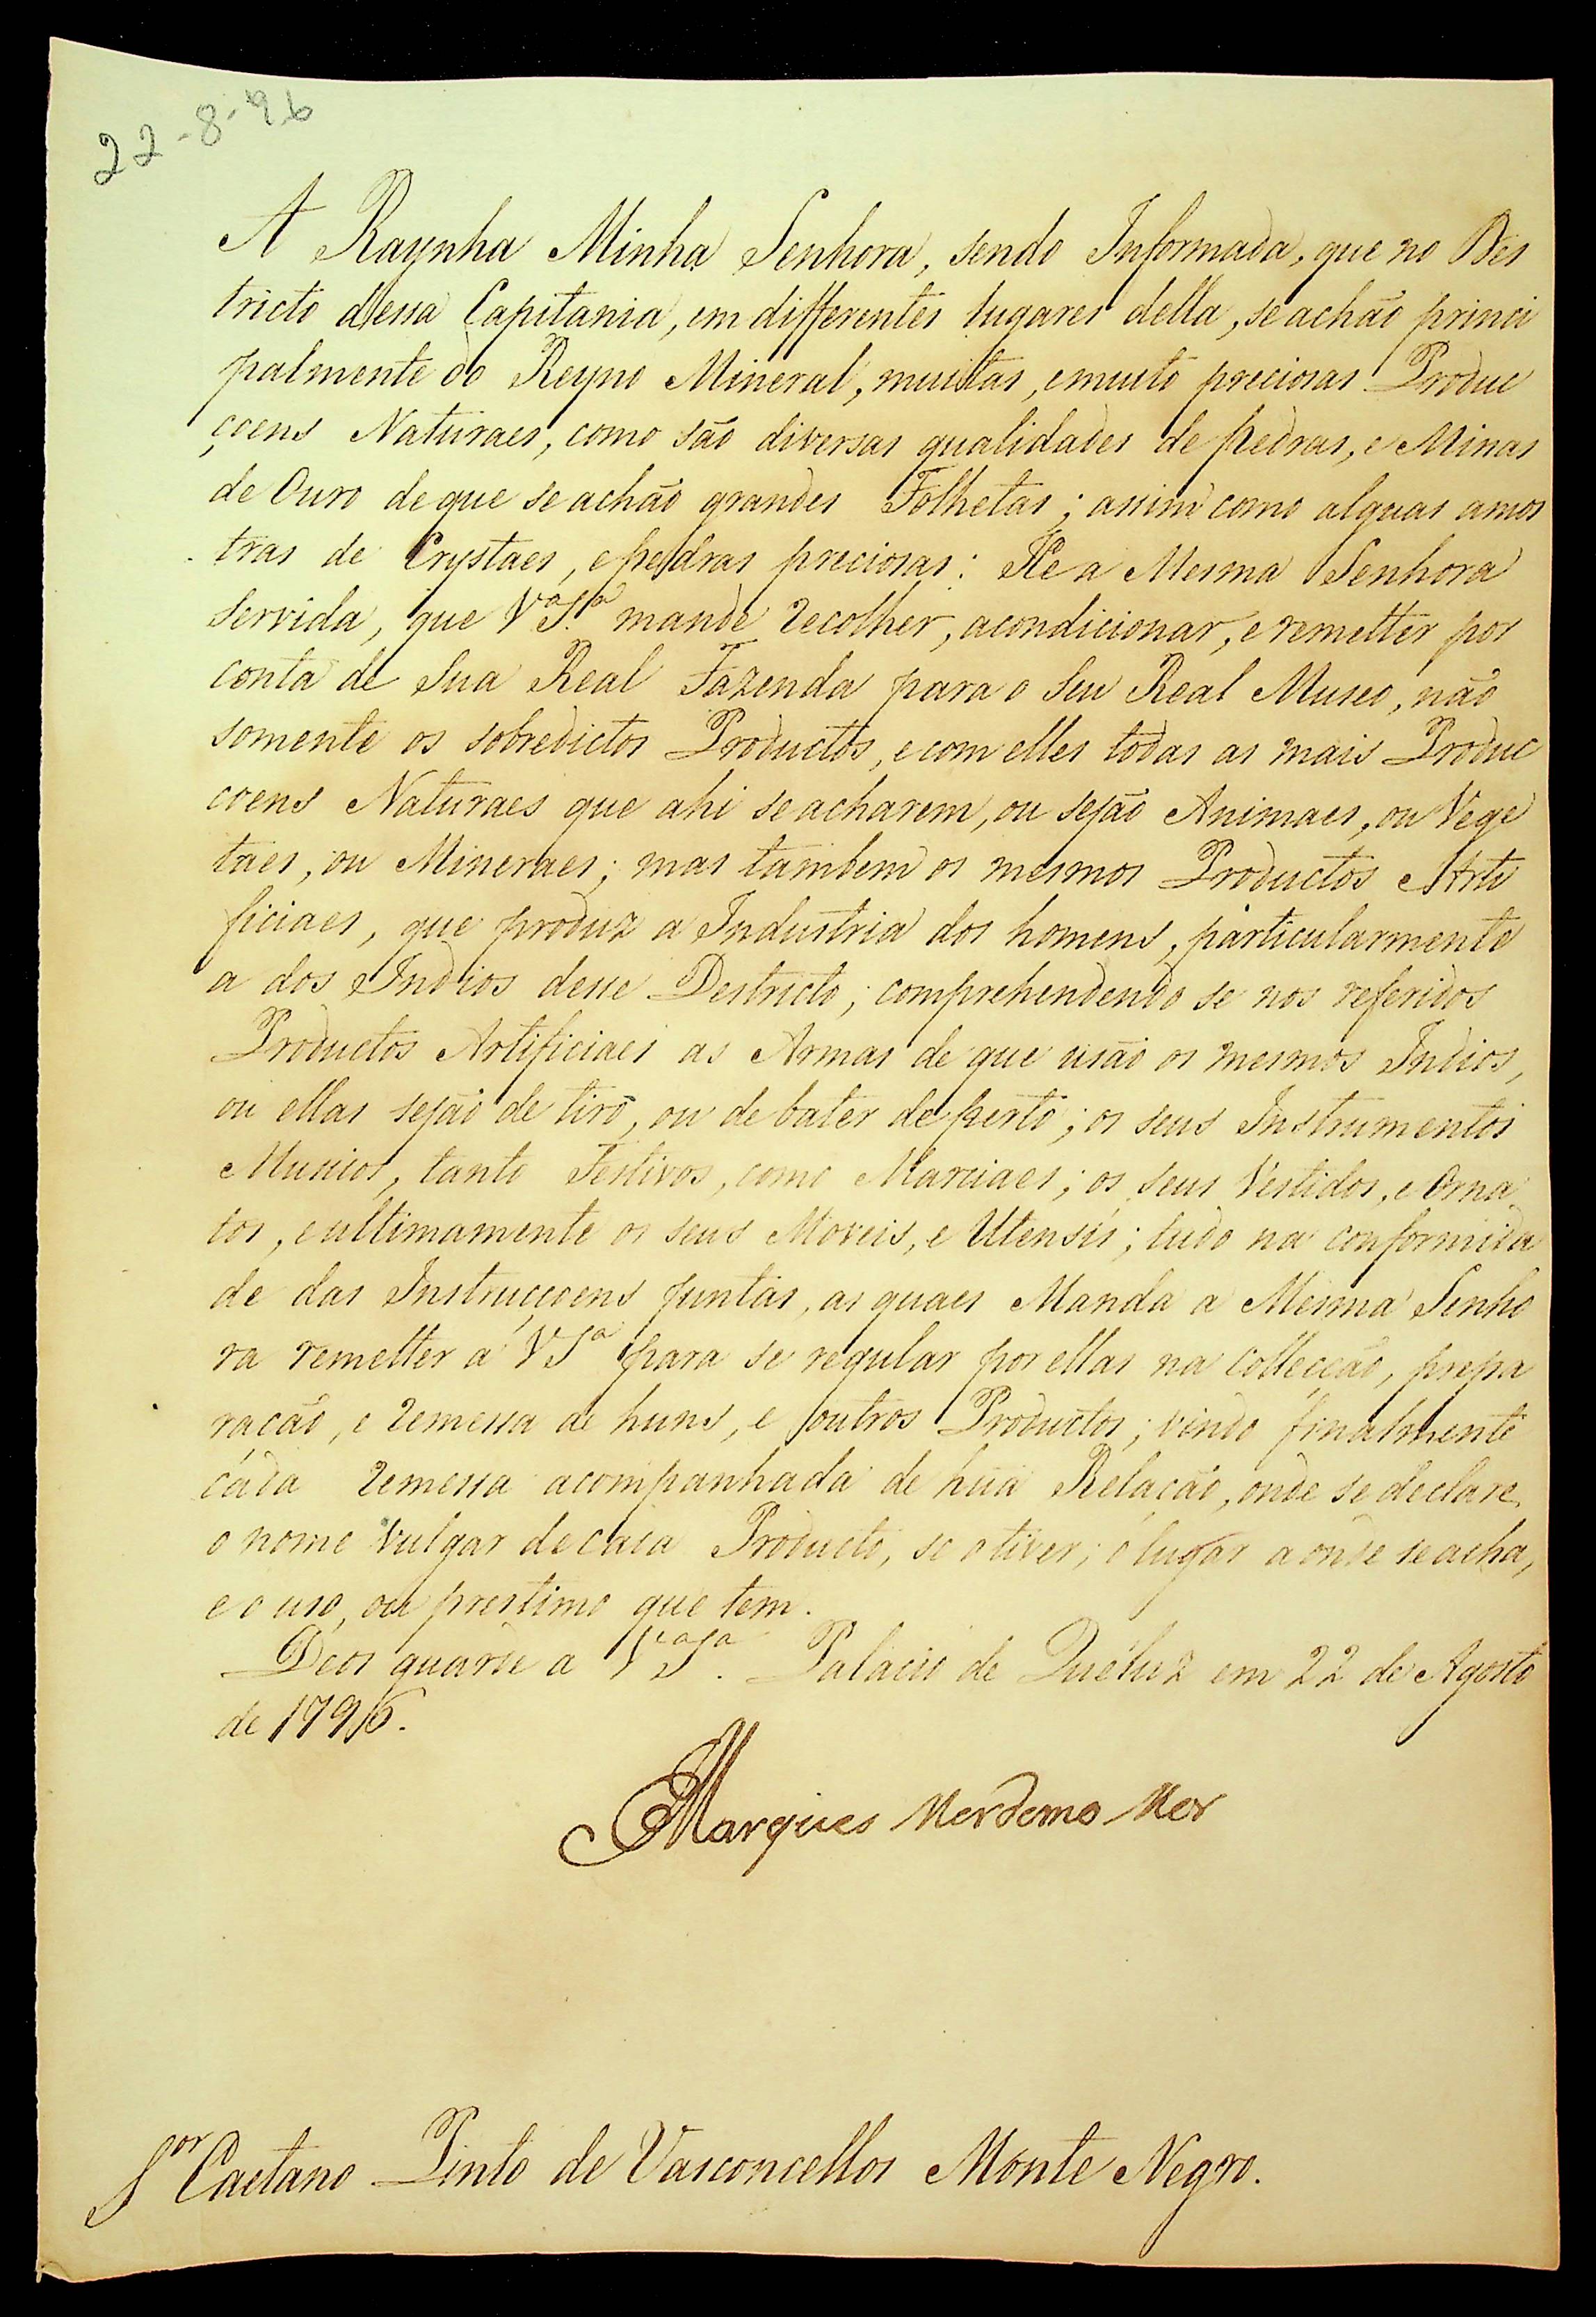 22-8-96
A Raynha Minha Senhora, sendo Informada, que no Des
tricto dessa Capitania, em differentes lugares della, se achão princi
palmente do Reyno Mineral, muitas, e muito preciosas Produc
çoens Naturaes, como são diversas qualidades de pedras, e Minas
de Ouro de que se achão grandes Folhetas; assim como alguas amos
tras de Crystaes, e pedras preciosas: He a Mesma Senhora
Servida, que V.ª S.ª mande recolher, acondicionar, e remetter por
conta de Sua Real Fazenda para o Seu Real Museo, não
somente os sobredictos Productos, e com elles todas as mais Produc
coens Naturaes que ahi se acharem, ou sejão Animaes, ou Vege
taes, ou Mineraes; mas tambem os mesmos Productos Arti
ficiaes, que produz a Industria dos homens, particularmente
a dos Indios desse Destricto; comprehendendo se nos referidos
Productos Artificiaes as Armas de que usão os mesmos Indios,
ou ellas sejão de tiro, ou de bater de perto; os seus Instrumentos
Musicos, tanto Festivos, como Marciaes; os seus Vestidos, e Orna
tos, e ultimamente os seus Moveis, e Utensis; tudo na conformida
de das Instrucçoens juntas, as quaes Manda a Mesma Senho
ra remetter a VSª para se regular por ellas na collecção, prepa
ração, e remessa de huns, e outros Productos; vindo finalmente
cada remessa acompanhada de hũa Relação, onde se declare
o nome vulgar de cada Producto, se o tiver; o lugar aonde se acha,
e o uso, ou prestimo que tem.
Deos guarde a V.ª S.ª Palacio de Quéluz em 22 de Agosto
de 1796.
Marques Mordomo Mor
S.or Caetano Pinto de Vasconcellos Monte Negro.